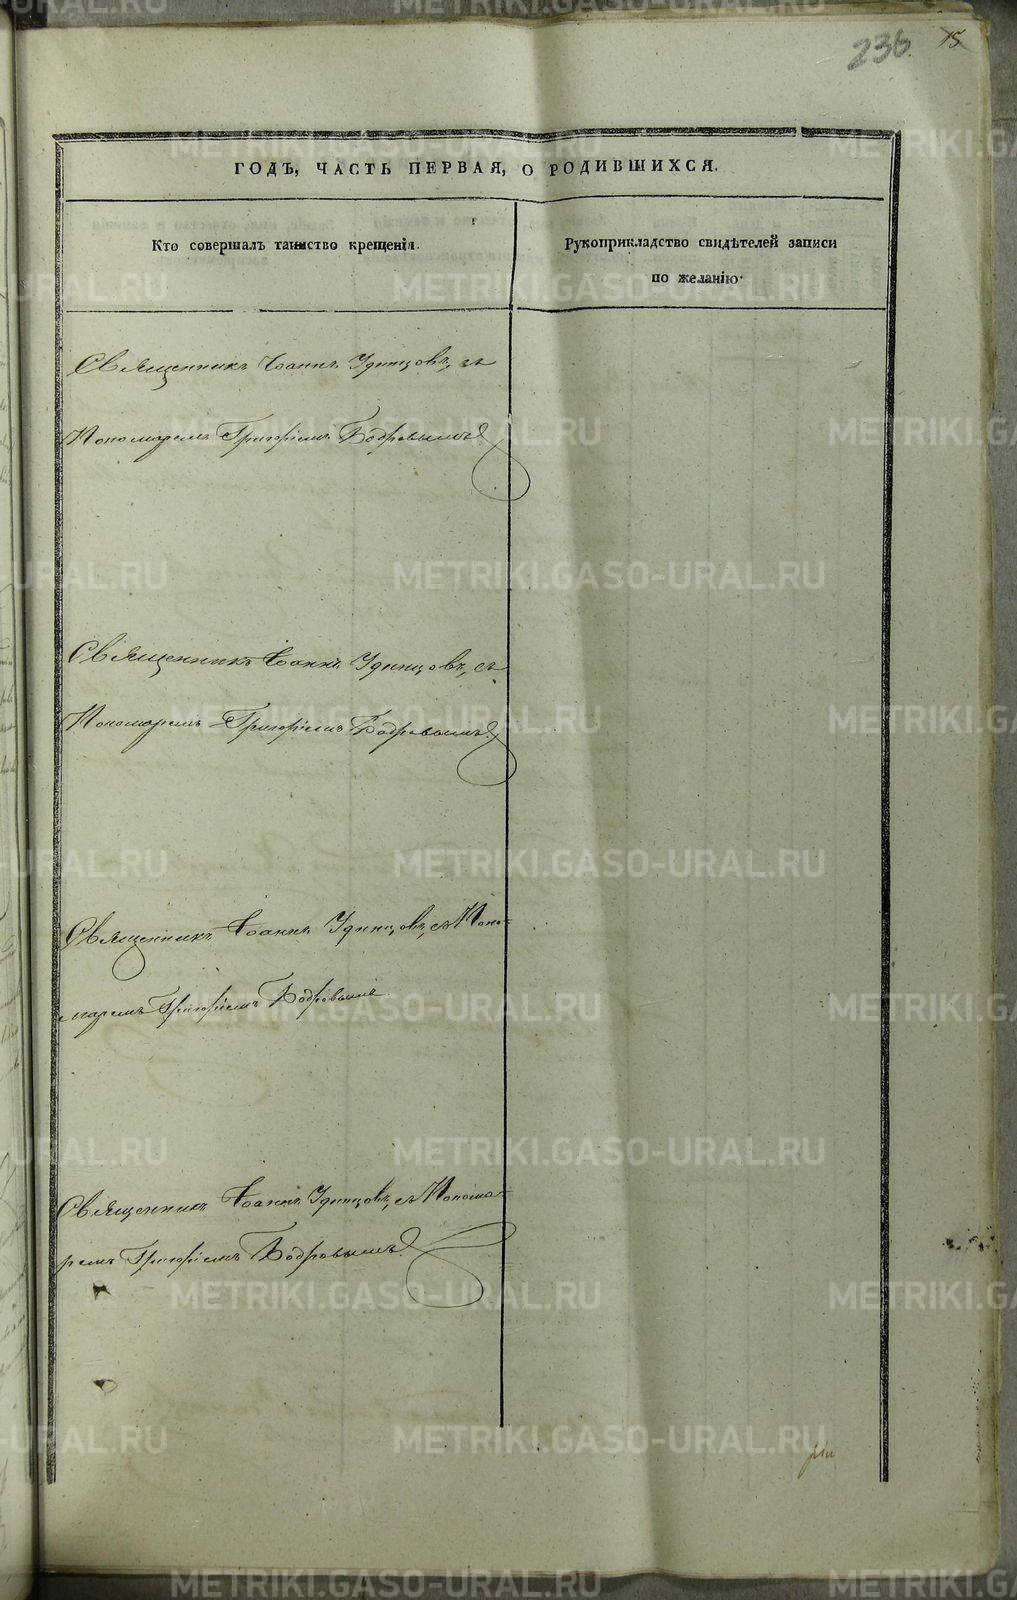 236 15
ГОДЪ, ЧАСТЬ ПЕРВАЯ, О РОДИВШИХСЯ.
Кто совершалъ таинство крещенія.
Рукоприкладство свидѣтелей записи
по желанію.
Священникъ Іоаннъ Удинцовъ, съ
Пономаремъ Григоріемъ Бодровымъ
Священникъ Іоаннъ Удинцовъ, съ
Пономаремъ Григоріемъ Бодровымъ
Священникъ Іоаннъ Удинцовъ, съ Поно-
маремъ Григоріемъ Бодровымъ
Священникъ Іоаннъ Удинцовъ, съ Понома-
ремъ Григоріемъ Бодровымъ
METRIKI.GASO-URAL.RU